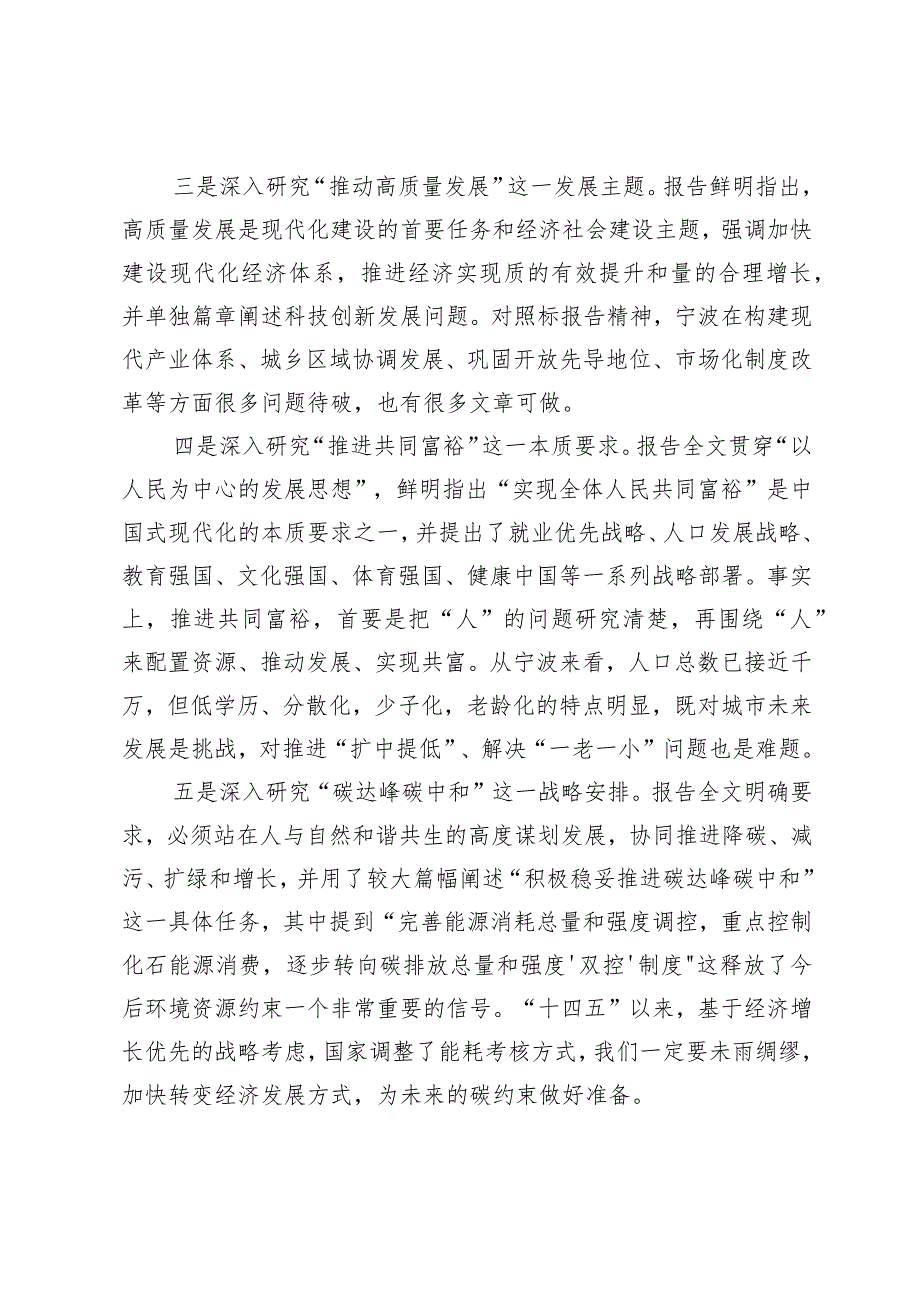 三是深入研究“推动高质量发展”这一发展主题。报告鲜明指出，
高质量发展是现代化建设的首要任务和经济社会建设主题，强调加快
建设现代化经济体系，推进经济实现质的有效提升和量的合理增长，
并单独篇章阐述科技创新发展问题。对照标报告精神，宁波在构建现
代产业体系、城乡区域协调发展、巩固开放先导地位、市场化制度改
革等方面很多问题待破，也有很多文章可做。
四是深入研究“推进共同富裕”这一本质要求。报告全文贯穿“以
人民为中心的发展思想”，鲜明指出“实现全体人民共同富裕”是中
国式现代化的本质要求之一，并提出了就业优先战略、人口发展战略、
教育强国、文化强国、体育强国、健康中国等一系列战略部署。事实
上，推进共同富裕，首要是把“人”的问题研究清楚，再围绕“人”
来配置资源、推动发展、实现共富。从宁波来看，人口总数已接近千
万，但低学历、分散化，少子化，老龄化的特点明显，既对城市未来
发展是挑战，对推进“扩中提低”、解决“一老一小”问题也是难题。
五是深入研究“碳达峰碳中和”这一战略安排。报告全文明确要
求，必须站在人与自然和谐共生的高度谋划发展，协同推进降碳、减
污、扩绿和增长，并用了较大篇幅阐述“积极稳妥推进碳达峰碳中和”
这一具体任务，其中提到“完善能源消耗总量和强度调控，重点控制
化石能源消费，逐步转向碳排放总量和强度'双控'制度"这释放了今
后环境资源约束一个非常重要的信号。“十四五”以来，基于经济增
长优先的战略考虑，国家调整了能耗考核方式，我们一定要未雨绸缪，
加快转变经济发展方式，为未来的碳约束做好准备。